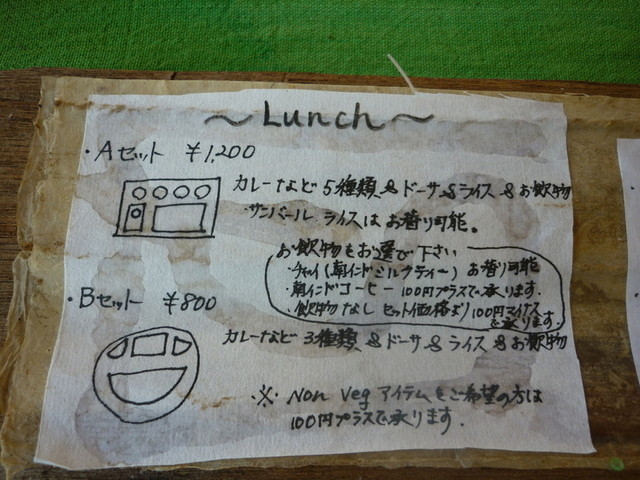 ～Lunch～
・Aセット ¥1,200
カレーなど5種類 & ドーサ & ライス & お飲物
・サンバール ライスは お替り可能。
お飲物をお選び下さい
・チャイ(南インドミルクティー) お替り可能
・南インドコーヒー 100円プラスで承ります。
・飲物なし セット価格より100円マイナス
で承ります。
・Bセット ¥800
カレーなど3種類 & ドーサ & ライス & お飲物
※ Non Veg アイテムをご希望の方は
100円プラスで承ります。